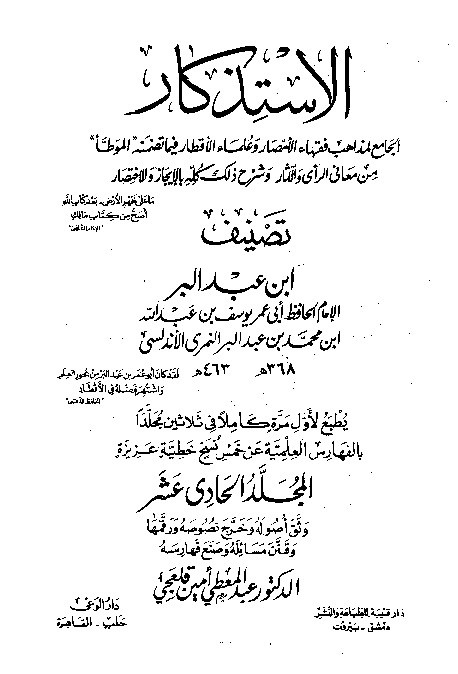 الاستذكار
الجامع لمذاهب فقهاء الأمصار وعلماء الأقطار فيما تضمنه "الموطأ"
من معاني الرأي والآثار وشرح ذلك كله بالإيجاز والاختصار
ما على ظهر الأرض - بعد كتاب الله
أصح من كتاب مالك
"الإمام الشافعي"
تصنيف
ابن عبد البر
الإمام الحافظ أبي عمر يوسف بن عبد الله
ابن محمد بن عبد البر النمري الأندلسي
٣٦٨هـ ٤٦٣هـ
لقد كان أبو عمر بن عبد البر من بحور العلم
واشتهر فضله في الأقطار
"الحافظ الذهبي"
يطبع لأول مرة كاملا في ثلاثين مجلدا
بالفهارس العلمية عن خمس نسخ خطية عزيزة
المجلد الحادي عشر
وثق أصوله وخرج نصوصه ورقمها
وقنن مسائله وصنع فهارسه
الدكتور عبد المعطي أمين قلعجي
دار قتيبة للطباعة والنشر
دمشق - بيروت
دار الوعي
حلب - القاهرة